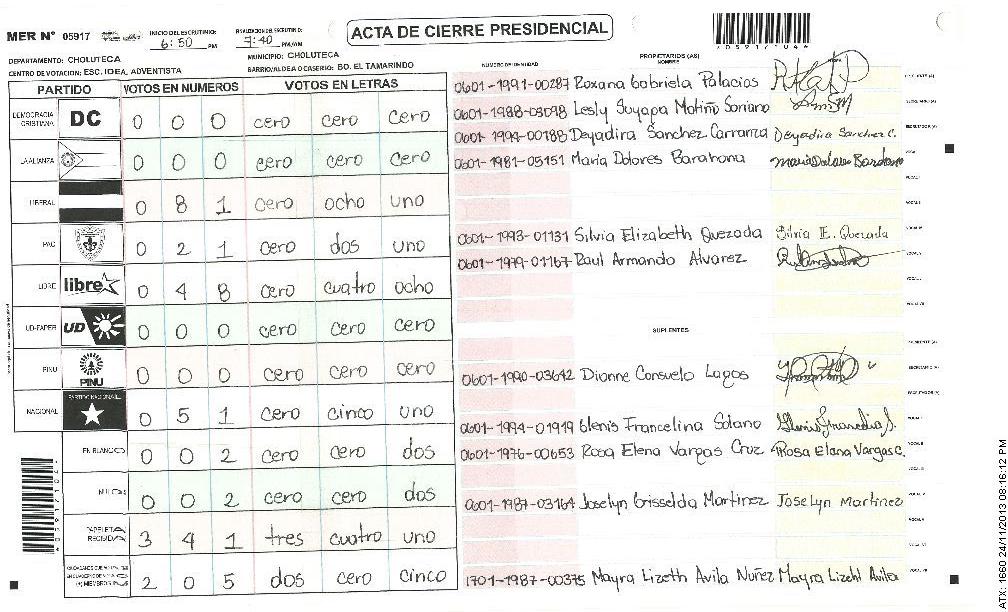 MER N° 05917
INICIO DEL ESCRUTINIO: 6:50 PM
FINALIZACION DEL ESCRUTINIO: 7:40 PM/AM
ACTA DE CIERRE PRESIDENCIAL
DEPARTAMENTO: CHOLUTECA
MUNICIPIO: CHOLUTECA
CENTRO DE VOTACION: ESC. IDEA, ADVENTISTA
BARRIO/ALDEA O CASERIO: BO. EL TAMARINDO
PARTIDO VOTOS EN NUMEROS VOTOS EN LETRAS
DEMOCRACIA CRISTIANA DC 0 0 0 cero cero cero
LA ALIANZA 0 0 0 cero cero cero
LIBERAL 0 8 1 cero ocho uno
PAC 0 2 1 cero dos uno
LIBRE libre 0 4 8 cero cuatro ocho
UD-FAPER UD 0 0 0 cero cero cero
PINU PINU 0 0 0 cero cero cero
NACIONAL PARTIDO NACIONAL 0 5 1 cero cinco uno
EN BLANCO 0 0 2 cero cero dos
NULOS 0 0 2 cero cero dos
PAPELETAS RECIBIDAS 3 4 1 tres cuatro uno
2 0 5 dos cero cinco
NUMERO DE IDENTIDAD
PROPIETARIOS (AS)
NOMBRE
0601-1991-00287 Roxana Gabriela Palacios
0601-1988-03098 Lesly Suyapa Motiño Soriano
0601-1994-00188 Deyadira Sanchez Carranza Deyadira Sanchez C.
0601-1981-05151 Maria Dolores Barahona
0601-1993-01131 Silvia Elizabeth Quezada Silvia E. Quezada
0601-1979-01167 Raul Armando Alvarez
SUPLENTES
0601-1990-03642 Dionne Consuelo Lagos
0601-1994-01919 Glenis Francelina Solano
0601-1976-00653 Rosa Elena Vargas Cruz Rosa Elena Vargas C.
0601-1987-03164 Joselyn Grisselda Martinez Joselyn Martinez
1701-1987-00375 Mayra Lizeth Avila Nuñez Mayra Lizeht Avila
ATX: 1660 24/11/2013 08:16:12 PM